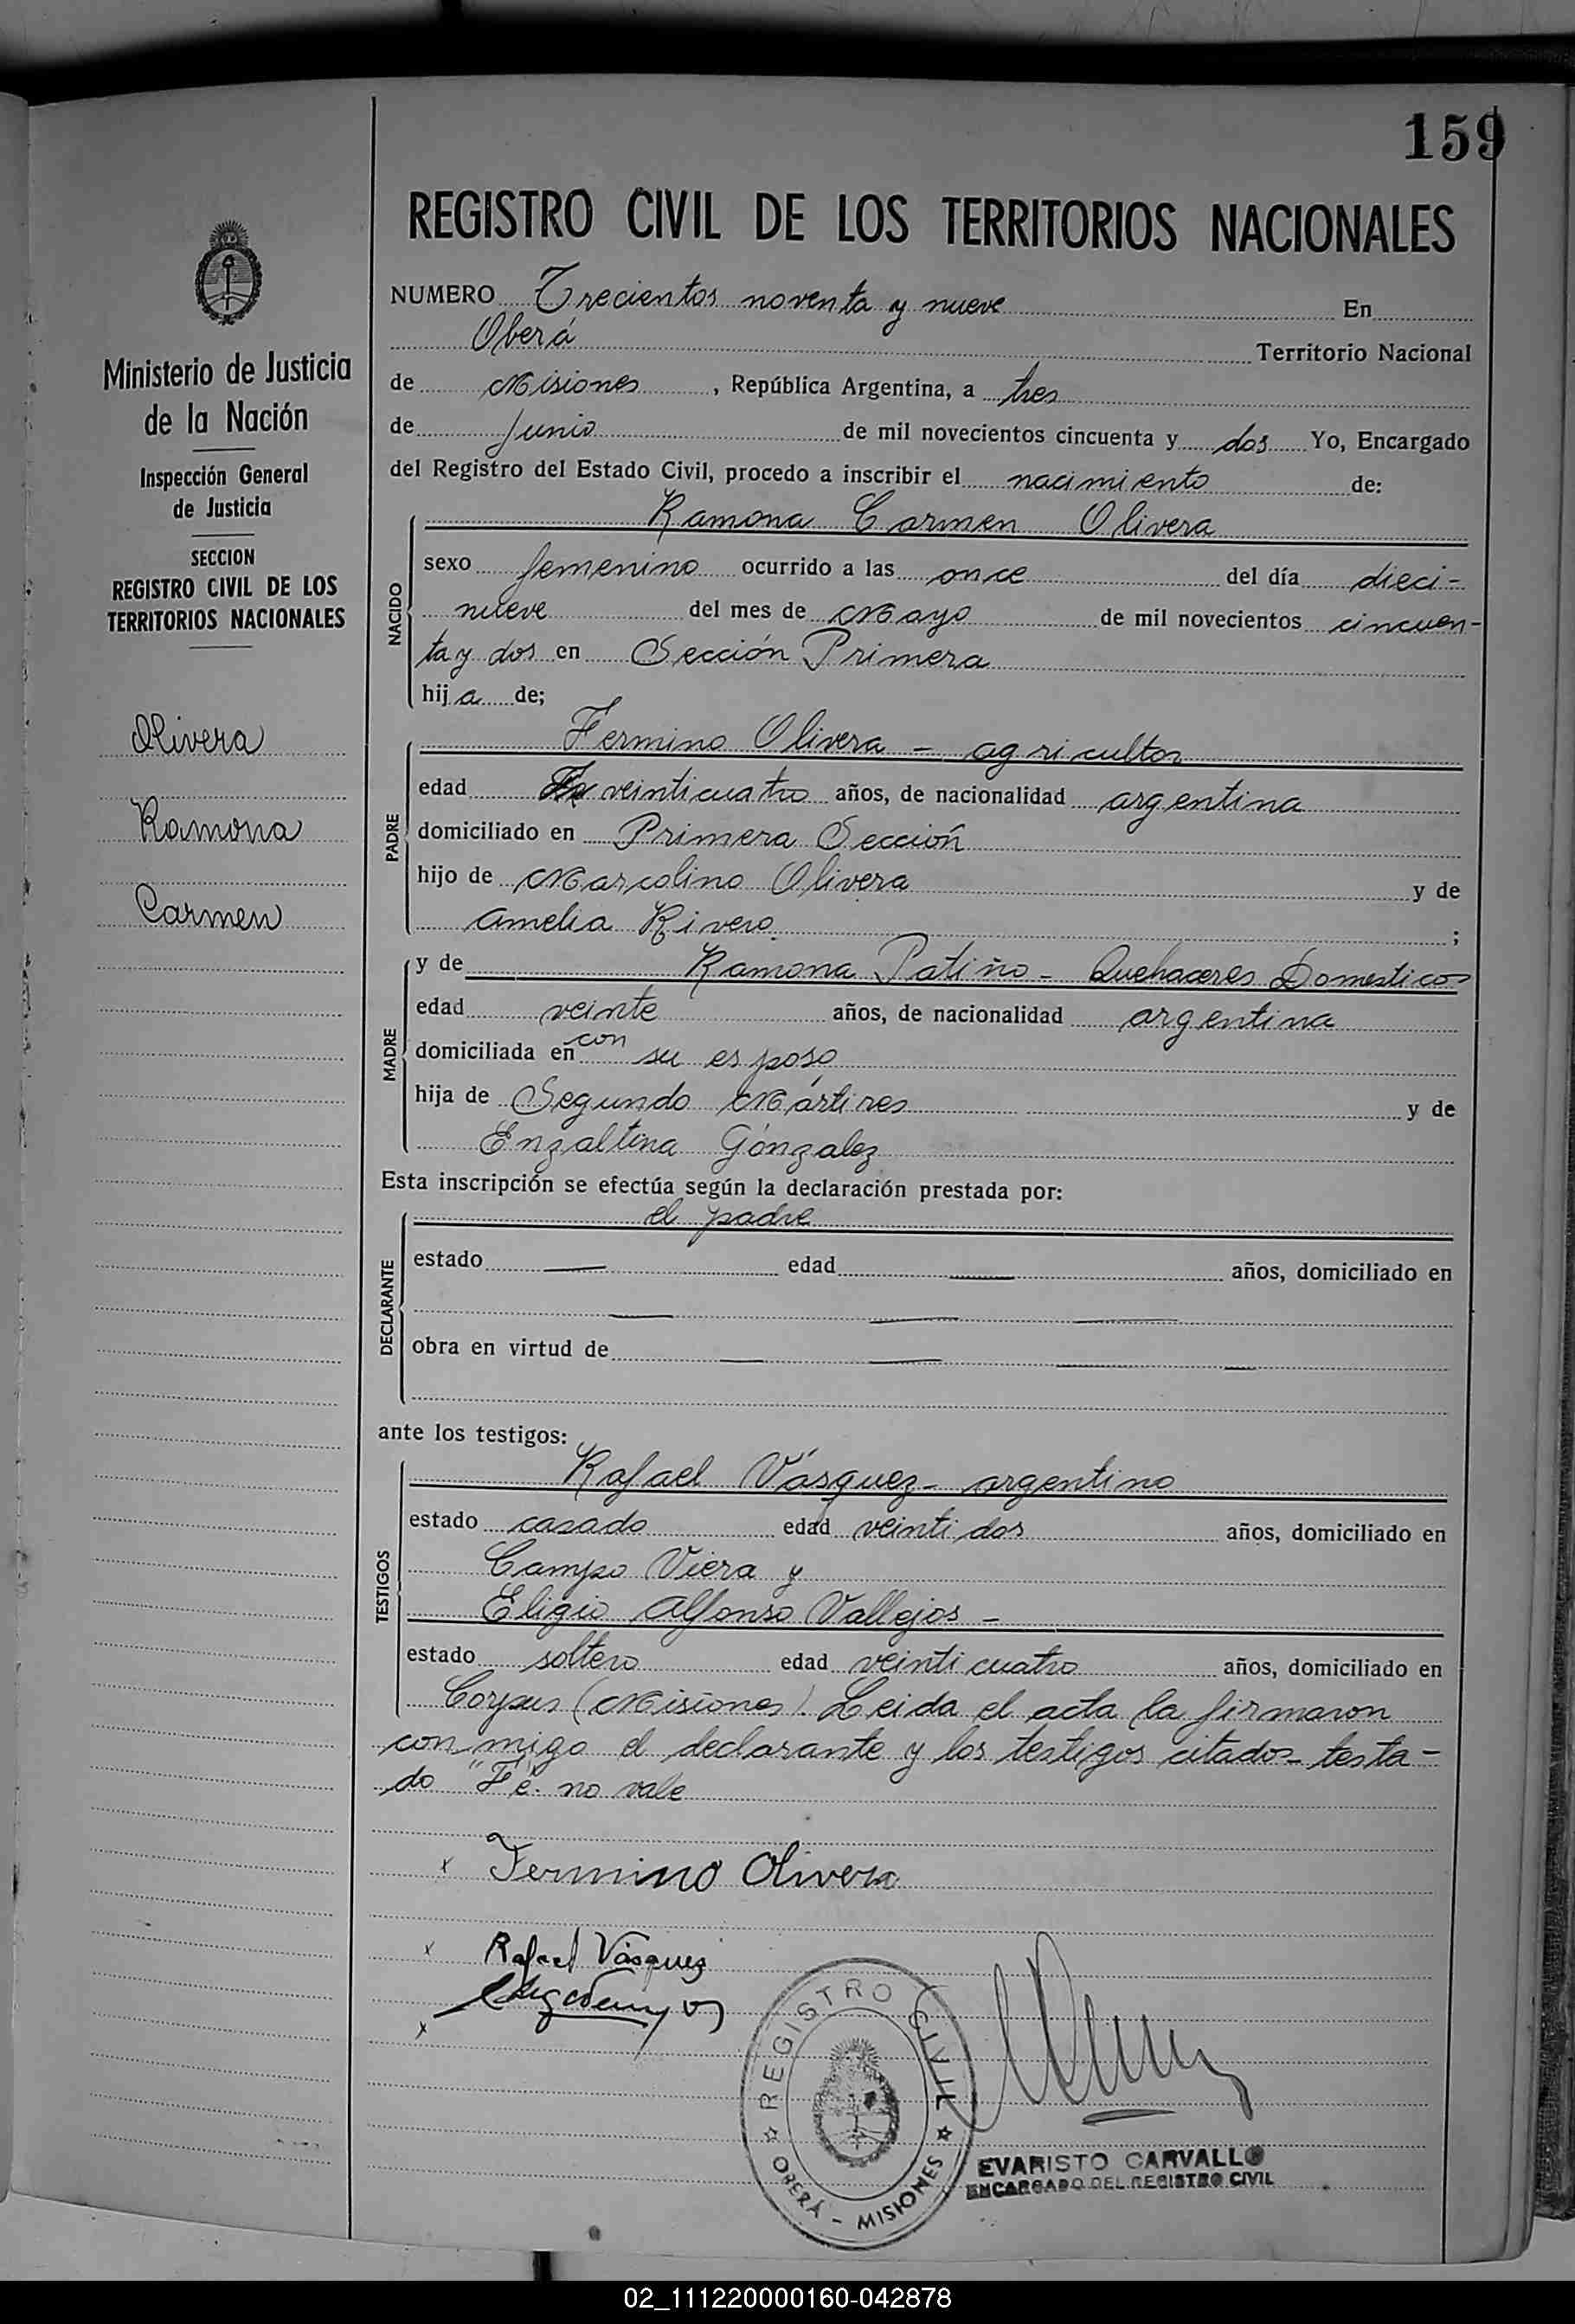 159
REGISTRO CIVIL DE LOS TERRITORIOS NACIONALES
Ministerio de Justicia
de la Nación
Inspección General
de Justicia
SECCION
REGISTRO CIVIL DE LOS
TERRITORIOS NACIONALES
Olivera
Ramona
Carmen
NUMERO Trecientos noventa y nueve En
Oberá Territorio Nacional
de Misiones, República Argentina, a tres
de Junio de mil novecientos cincuenta y dos Yo, Encargado
del Registro del Estado Civil, procedo a inscribir el nacimiento de:
NACIDO
Ramona Carmen Olivera
sexo femenino ocurrido a las once del día dieci-
nueve del mes de Mayo de mil novecientos cincuen-
ta y dos en Sección Primera
hija de;
PADRE
Fermino Olivera - agricultor
edad Fe veinticuatro años, de nacionalidad argentina
domiciliado en Primera Sección
hijo de Marcolino Olivera y de
Amelia Rivero ;
MADRE
y de Ramona Patiño - Quehaceres Domesticos
edad veinte años, de nacionalidad argentina
domiciliada en con su esposo
hija de Segundo Mártires y de
Enzaltina Gónzalez
Esta inscripción se efectúa según la declaración prestada por:
DECLARANTE
el padre
estado — edad — años, domiciliado en
— — —
obra en virtud de — — — —
ante los testigos:
TESTIGOS
Rafael Vásquez - argentino
estado casado edad veintidos años, domiciliado en
Campo Viera y
Eligio Alfonso Vallejos -
estado soltero edad veinticuatro años, domiciliado en
Corpus (Misiones). Leida el acta la firmaron
conmigo el declarante y los testigos citados - testa-
do "Fe" no vale
x Fermino Olivera
x Rafael Vásquez
x
REGISTRO CIVIL
OBERÁ - MISIONES
EVARISTO CARVALLO
ENCARGADO DEL REGISTRO CIVIL
02_111220000160-042878